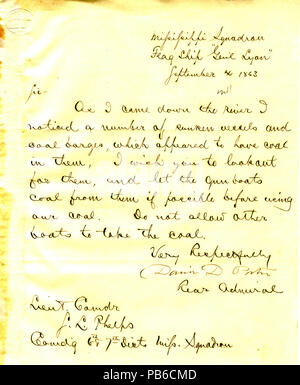 Mississippi Squadron
Flag Ship "Genl Lyon"
September 4 1863
Sir
As I came down the river I
noticed a number of sunken vessels and
coal barges, which appeared to have coal
in them, I wish you to lookout
for them, and let the Gunboats
coal from them if possible before using
our coal. Do not allow other
boats to take the coal.
Very Respectfully
David D. Porter
Rear Admiral
Lieut Comdr
S. L. Phelps
Comdg 6th 7th Dists Miss. Squadron
alamy
Image ID: PB6CMD
www.alamy.com